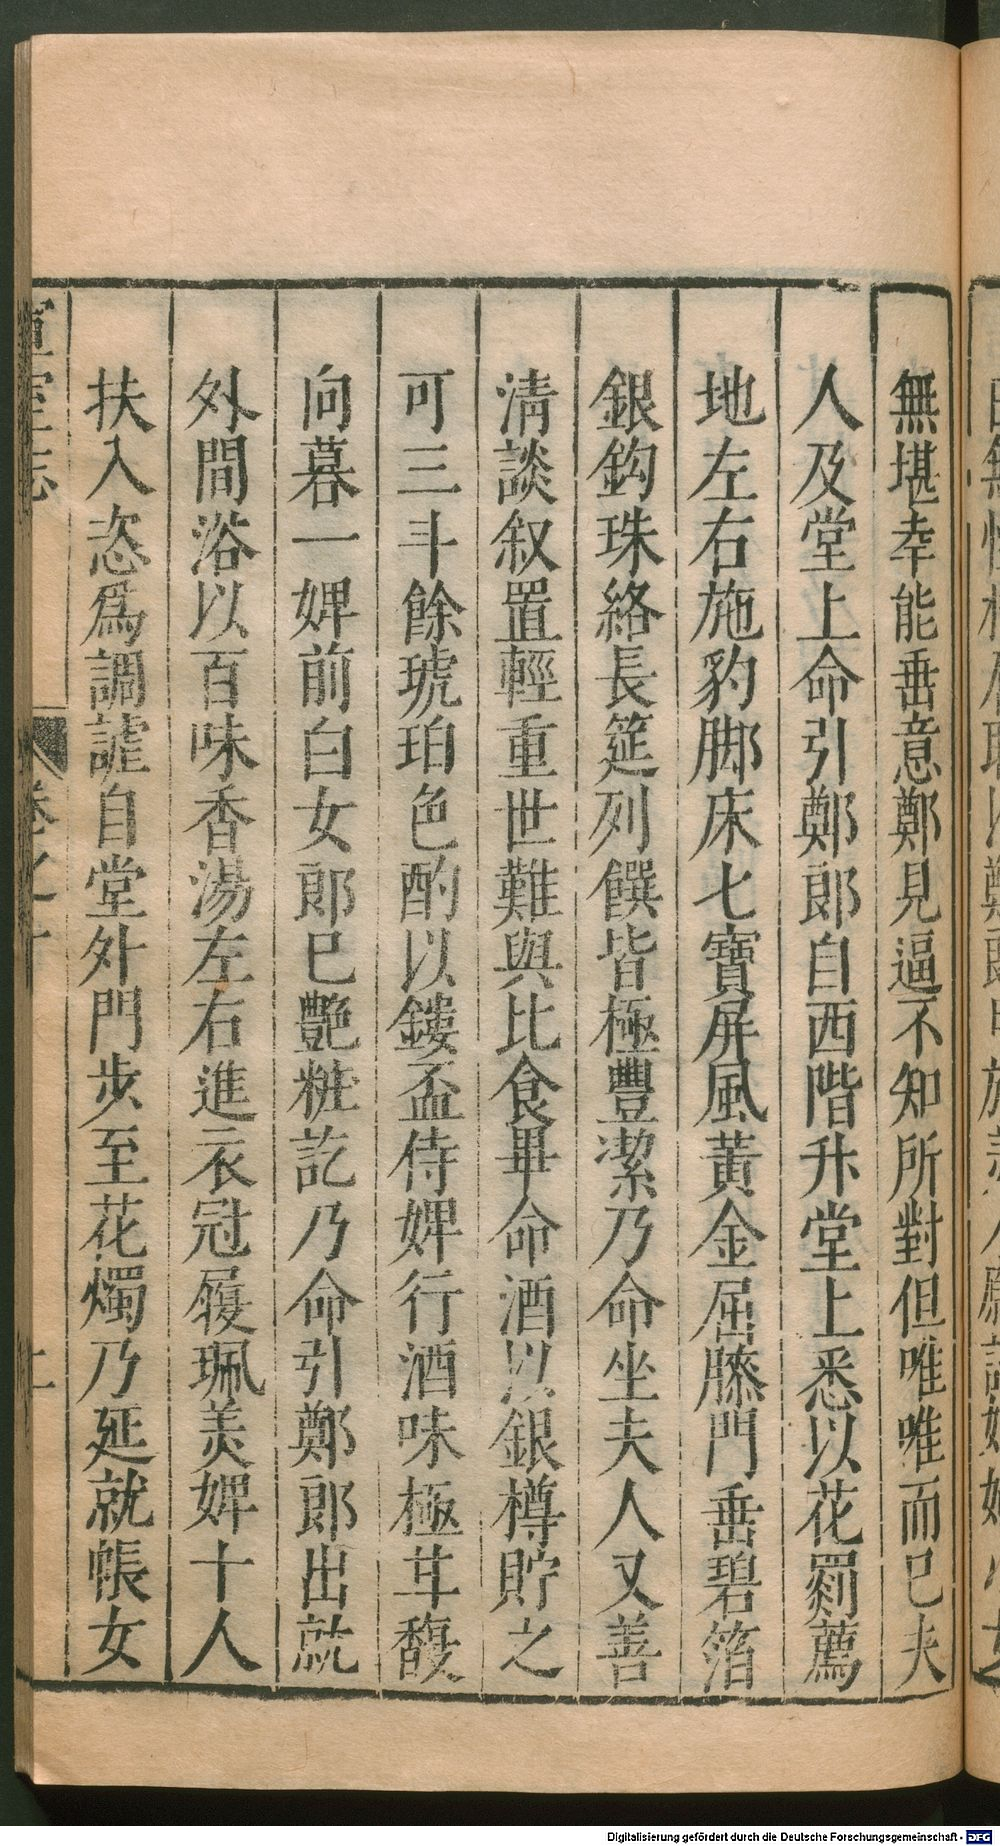 無堪幸能垂意鄭見逼不知所對但唯唯而已夫
人及堂上命引鄭郎自西階升堂上悉以花罽薦
地左右施豹脚床七寶屏風黃金屈膝門垂碧箔
銀鈎珠絡長筵列饌皆極豐潔乃命坐夫人又善
清談叙置輕重世難與比食畢命酒以銀樽貯之
可三斗餘琥珀色酌以鏤盃侍婢行酒味極甘馥
向暮一婢前白女郎已艶粧訖乃命引鄭郎出就
外間浴以百味香湯左右進衣冠履珮美婢十人
扶入恣爲調謔自堂外門步至花燭乃延就帳女
室志
卷之十
Digitalisierung gefördert durch die Deutsche Forschungsgemeinschaft - DFG